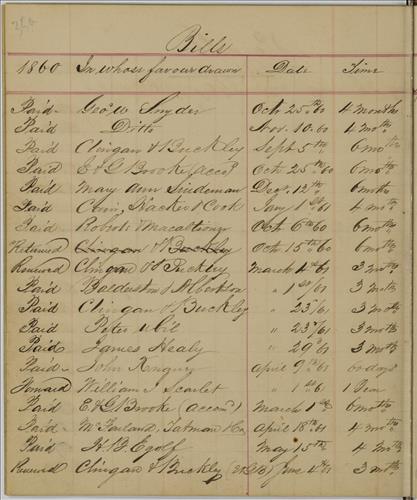 Bills
1860 In whose favour drawn Date Time
Paid Geo. W Snyder Oct 25th 60 4 months
Paid Ditto Nov. 10. 60 4 moths
Paid Clingan & Buckley Sept 5th 6 moths
Paid E & G Brooke, acco. Oct. 25th 60 6 moths
Paid Mary Ann Lindeman Dec. 12th 6 moths
Paid Hacker & Cook Jany 1st 61 4 moths
Paid Robots & Macattiour Oct. 6th 60 6 moths
Retained Clingan & Buckley Oct 15th 60 6 moths
Renewed Clingan & Buckley March 4th 61 3 moths
Paid Balderston & " 1st 61 3 moths
Paid Clingan & Buckley " 23/61 3 moths
Paid Peter " 23/61 3 moths
Paid James Healy " 29th 61 3 moths
Paid John April 9th 61 60 days
William J Scarlet " 1st 61 1 Year
Paid E & G Brooke (accon) March 1st 6 moths
Paid McFarland, Tatman & Co. April 18th 61 4 moths
Paid H. B. Egolf May 15th 4 moths
Renewed Clingan & Buckley June 4th 61 3 moths